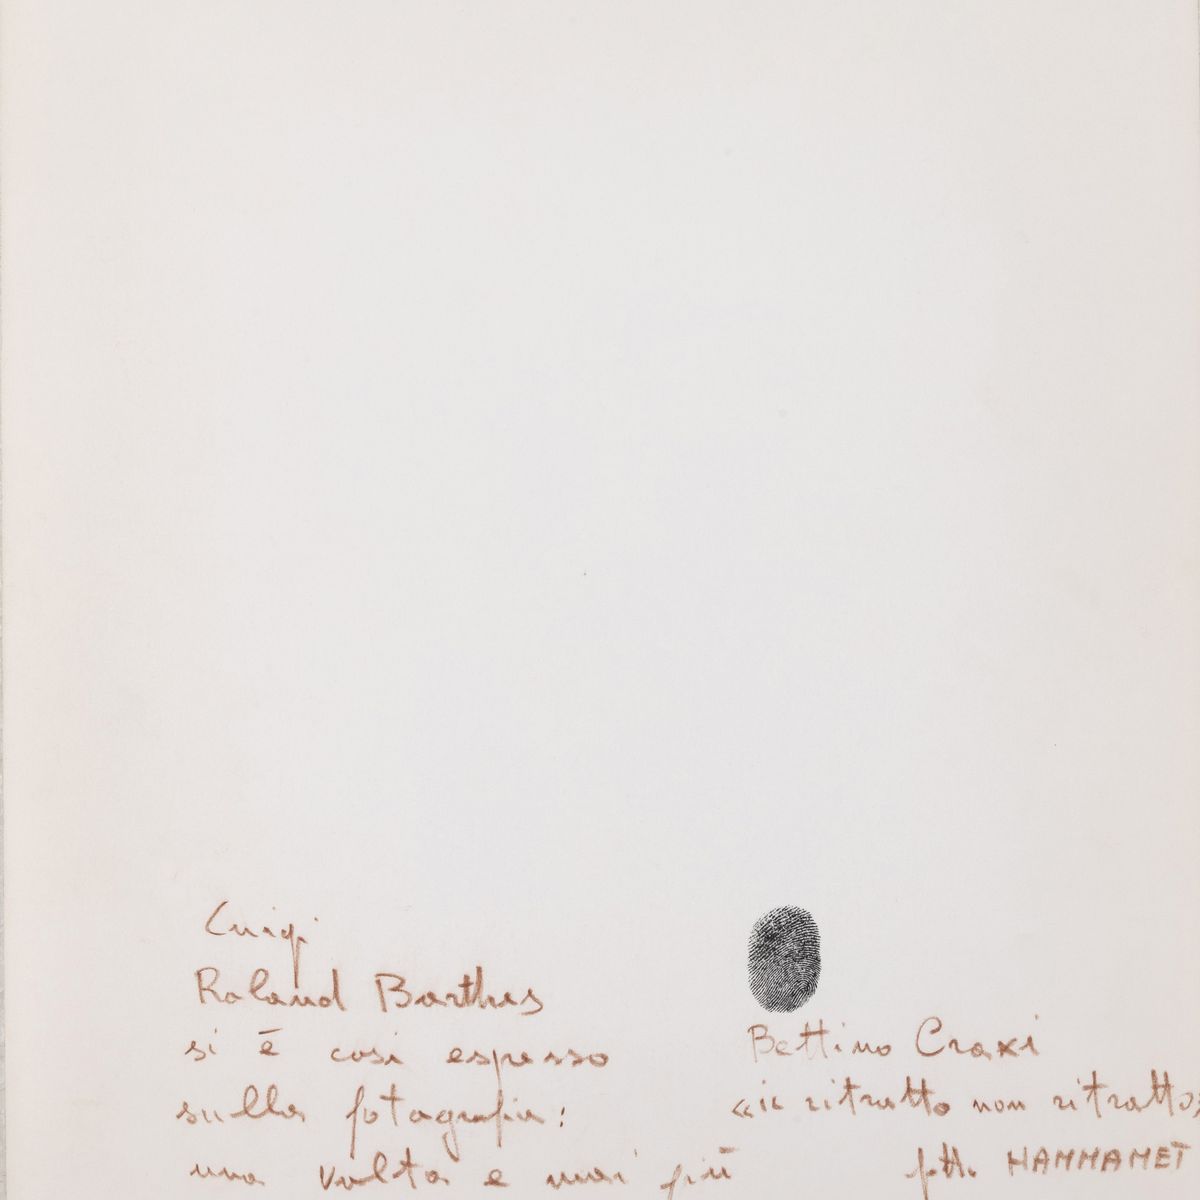 Luigi
Roland Barthes
si è così espresso
sulla fotografia:
una volta e mai più
Bettino Craxi
«il ritratto non ritratto»
HAMMAMET